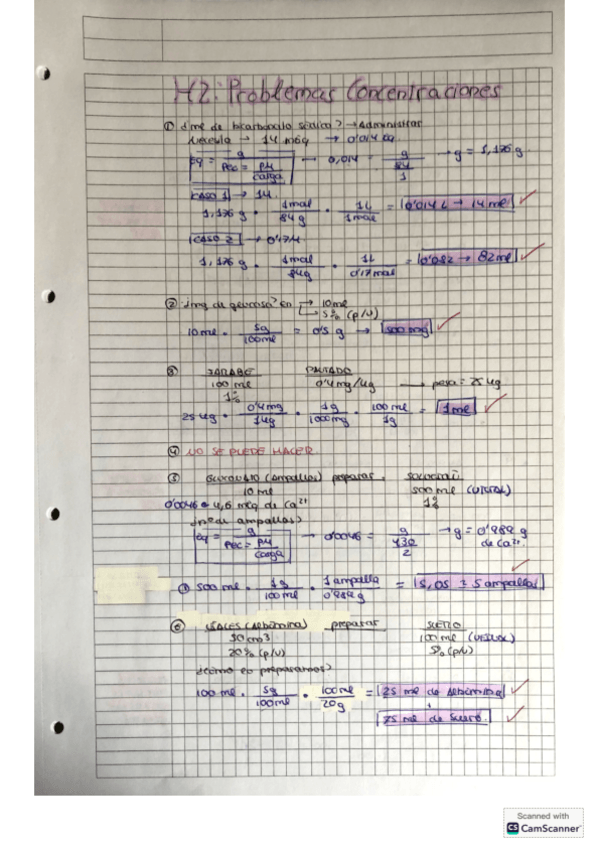 H2: Problemas Concentraciones
① ¿ml de bicarbonato sódico? → Administrar
→ 14 mEq → 0'014 Eq
Eq = g / PEQ = PM / carga → 0,014 = g / 84 / 1 → g = 1,176 g.
CASO 1 → 1M.
1,176 g · 1mol / 84 g · 1L / 1mol = 0'014 L → 14 ml
CASO 2 → 0'17M
1,176 g · 1mol / 84g · 1L / 0'17mol = 0'082 → 82ml
② ¿mg de glucosa? en → 10ml
→ 5% (p/v)
10ml · 5g / 100ml = 0'5 g → 500 mg
③ JARABE PAUTADO
100 ml 0'4mg/kg → pesa = 25 kg
1%
25 kg · 0'4mg / 1kg · 1g / 1000mg · 100 ml / 1g = 1ml
④ NO SE PUEDE HACER
⑤ (ampollas) preparar.
10 ml 500 ml
0'0046 4,6 mEq de Ca²⁺ 1%
Eq = g / PEQ = PM / carga → 0'0046 = g / 430 / 2 → g = 0'989 g
de Ca²⁺.
500 ml · 1g / 100ml · 1 ampolla / 0'989 g = 5,05 = 5 ampollas
⑥ (Albúmina) preparar SUERO
50 cm³ 100 ml
20% (p/v) 5% (p/v)
¿Cómo lo preparamos?
100 ml · 5g / 100ml · 100ml / 20g = 25 ml de albúmina
75 ml de suero.
Scanned with
CS CamScanner